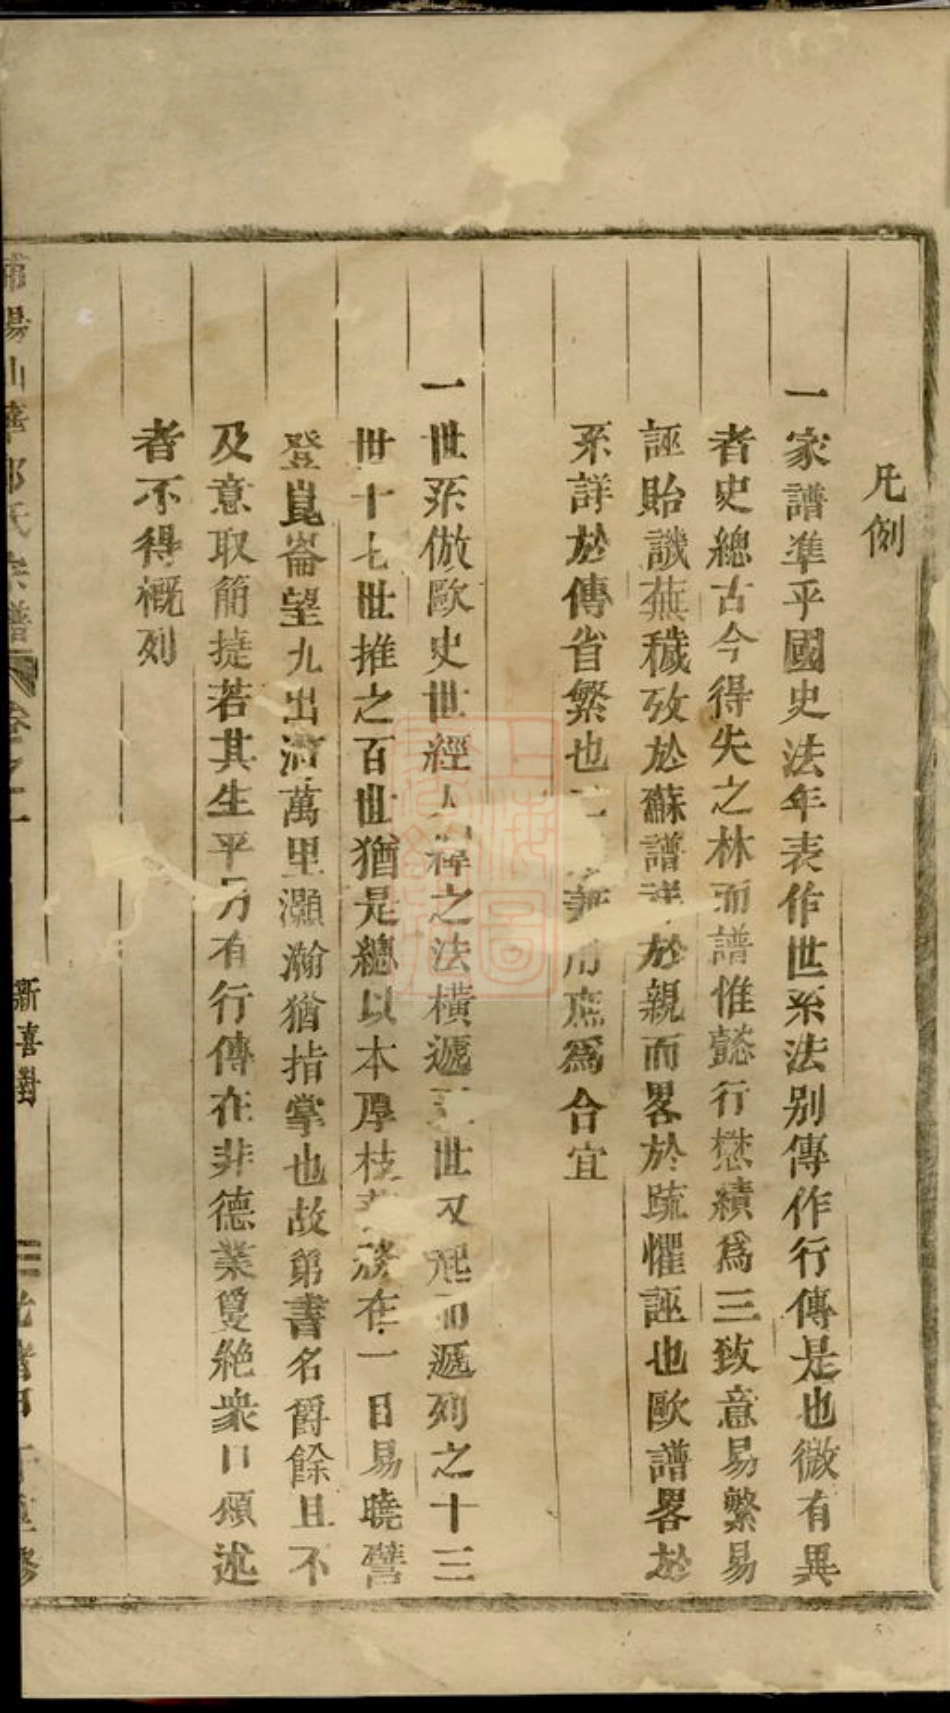 凡例
一家譜準乎國史法年表作世系法别傳作行傳是也微有異
者史總古今得失之林而譜惟懿行懋績爲三致意易繁易
誣貽譏蕪穢攷於蘇譜詳於親而畧於疏懼誣也歐譜畧於
系詳於傳省繁也 兼用庶爲合宜
一世系倣歐史世經人緯之法横遞五世又起而遞列之十三
世十七世推之百世猶是總以本厚枝 務在一目易曉譬
登崑崙望九出㴠萬里灝瀚猶指掌也故第書名爵餘且不
及意取簡捷若其生平另有行傳在非德業夐絶衆口頌述
者不得概列
浦陽山 氏宗譜 卷之一 新喜對 光緒 重修